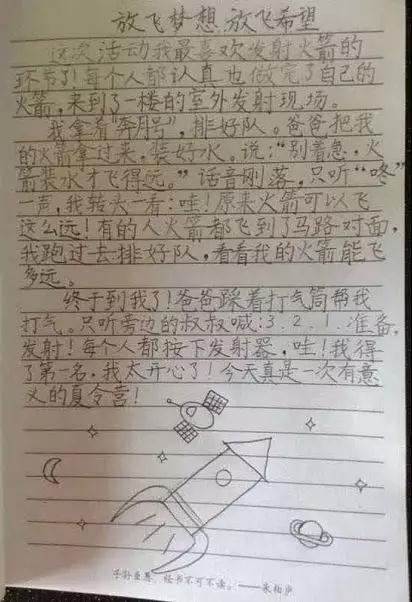 放飞梦想 放飞希望
这次活动我最喜欢发射火箭的
环节了!每个人都认真也做完了自己的
火箭,来到了一楼的室外发射现场。
我拿着“奔月号”,排好队。爸爸把我
的火箭拿过来,装好水。说:“别着急,火
箭装水才飞得远。”话音刚落,只听“咚”
一声,我转头一看:哇!原来火箭可以飞
这么远!有的人火箭都飞到了马路对面,
我跑过去排好队,看看我的火箭能飞
多远。
终于到我了!爸爸踩着打气筒帮我
打气。只听旁边的叔叔喊:3.2.1.准备,
发射!每个人都按下发射器,哇!我得
了第一名,我太开心了!今天真是一次有意
义的夏令营!
子孙虽愚,经书不可不读。——朱柏庐